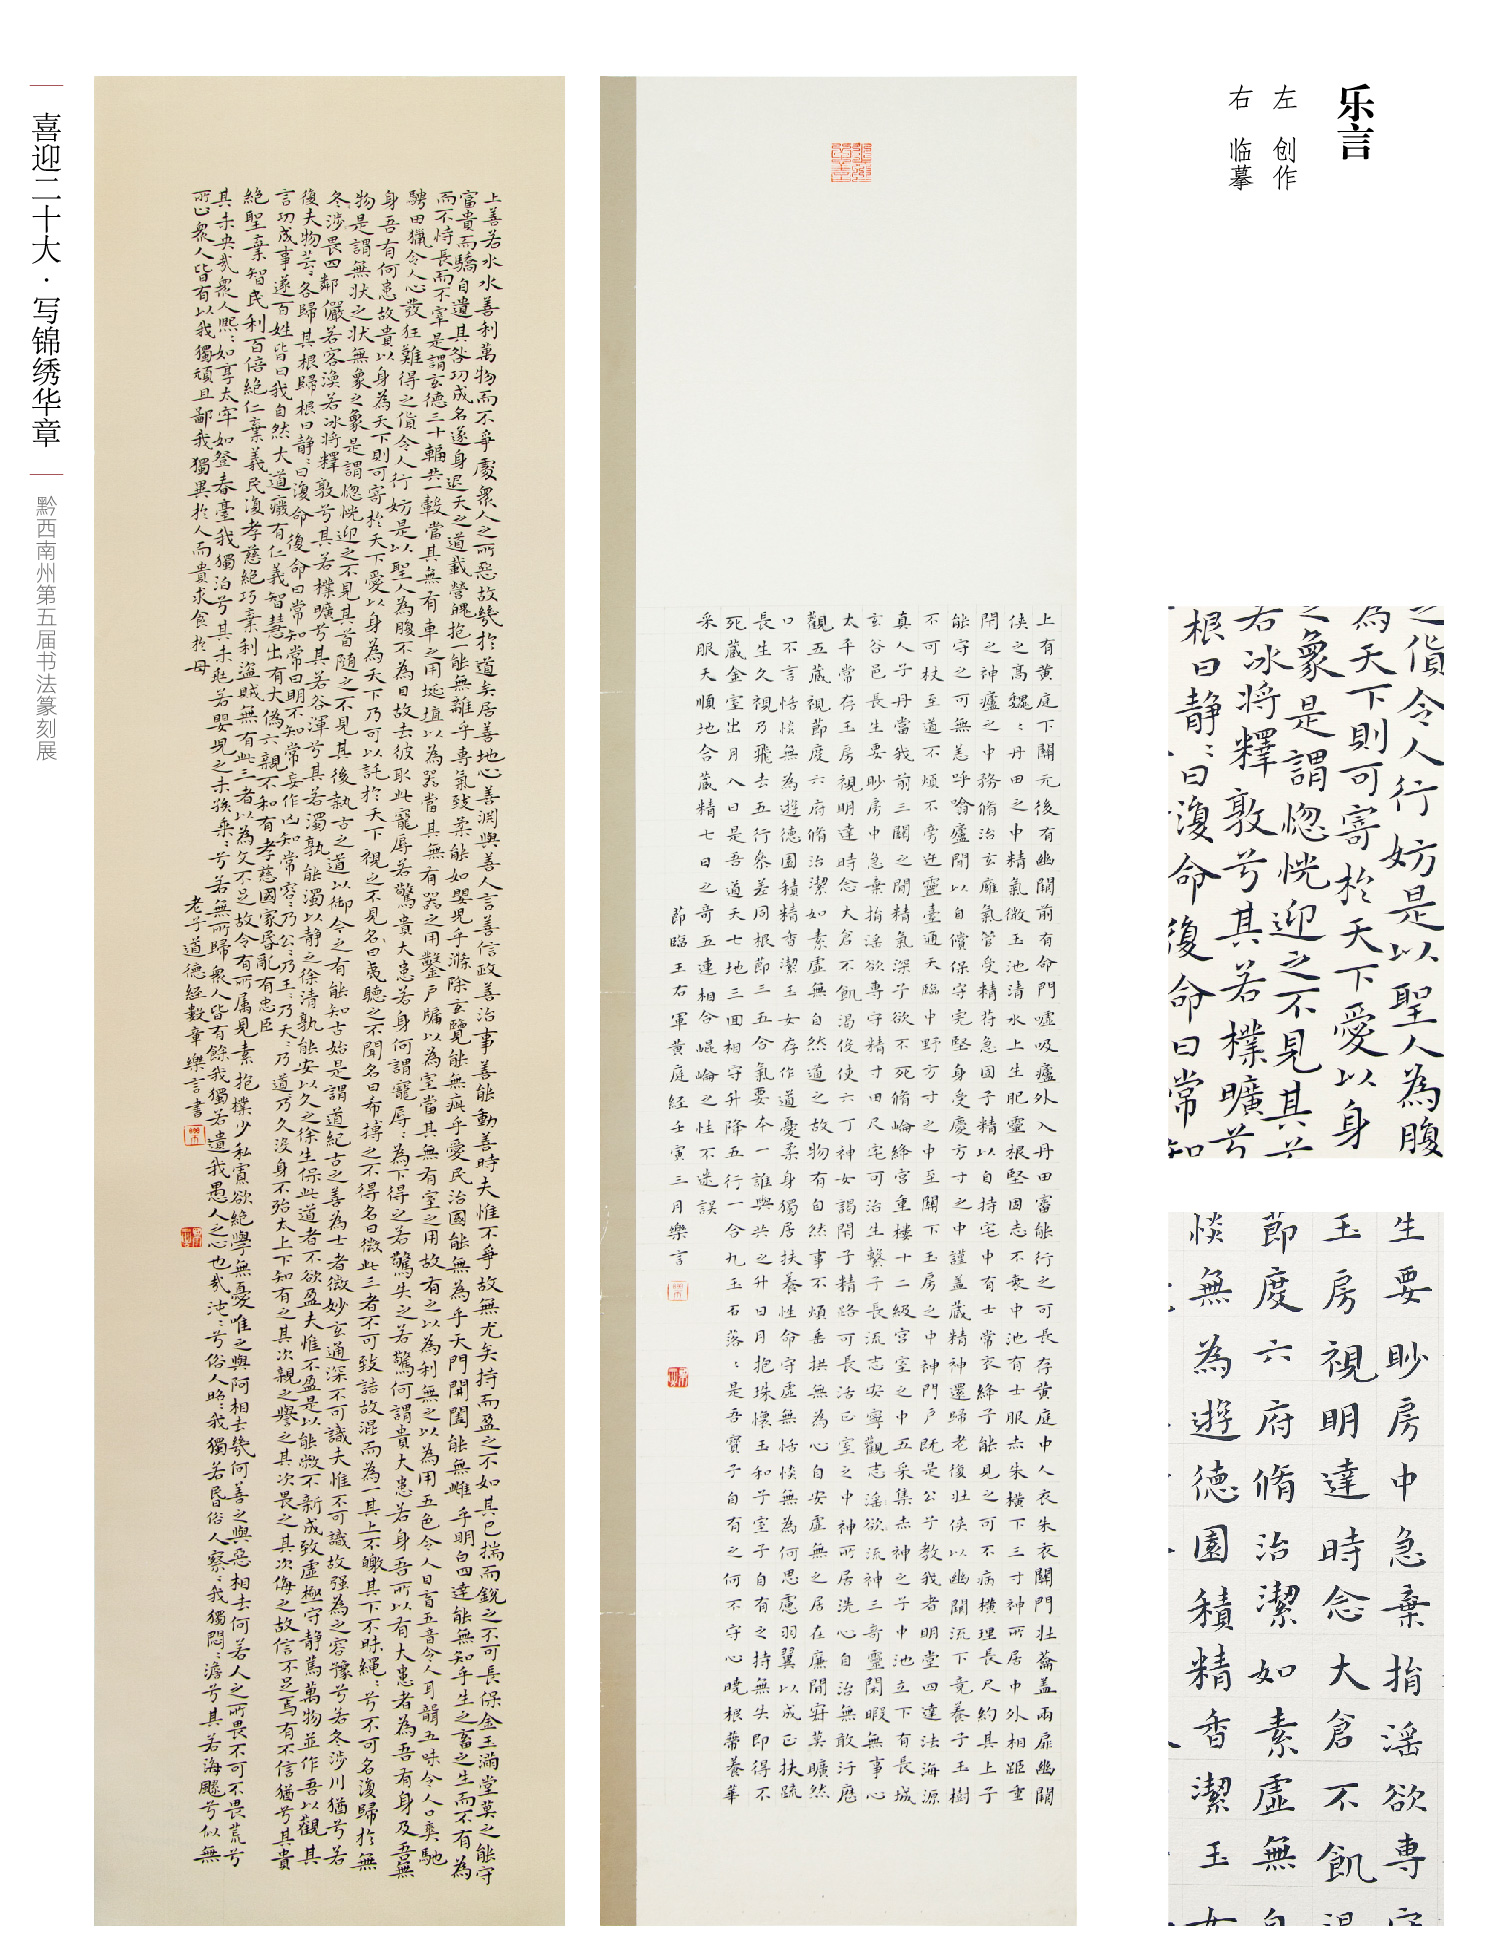 乐言
左 创作
右 临摹
喜迎二十大·写锦绣华章
黔西南州第五届书法篆刻展
上善若水水善利萬物而不爭處衆人之所惡故幾於道矣居善地心善淵與善人言善信政善治事善能動善時夫惟不爭故無尤矣持而盈之不如其已揣而銳之不可長保金玉滿堂莫之能守
富貴而驕自遺其咎功成名遂身退天之道載營魄抱一能無離乎專氣致柔能如嬰兒乎滌除玄覽能無疵乎愛民治國能無為乎天門開闔能無雌乎明白四達能無知乎生之畜之生而不有為
而不恃長而不宰是謂玄德三十輻共一轂當其無有車之用埏埴以為器當其無有器之用鑿戶牖以為室當其無有室之用故有之以為利無之以為用五色令人目盲五音令人耳聾五味令人口爽馳
騁田獵令人心發狂難得之貨令人行妨是以聖人為腹不為目故去彼取此寵辱若驚貴大患若身何謂寵辱:為下得之若驚失之若驚何謂貴大患若身吾所以有大患者為吾有身及吾無
身吾有何患故貴以身為天下則可寄於天下愛以身為天下乃可以託於天下視之不見名曰夷聽之不聞名曰希搏之不得名曰微此三者不可致詰故混而為一其上不皦其下不昧繩:兮不可名復歸於無
物是謂無狀之狀無象之象是謂惚恍迎之不見其首隨之不見其後執古之道以御今之有能知古始是謂道紀古之善為士者微妙玄通深不可識夫惟不可識故强為之容豫兮若冬涉川猶兮若
冬涉畏四鄰儼若客渙若冰將釋敦兮其若樸曠兮其若谷渾兮其若濁孰能濁以靜之徐清孰能安以久之徐生保此道者不欲盈夫惟不盈是以能敝不新成致虛極守靜篤萬物並作吾以觀其
復夫物芸:各歸其根歸根曰靜:曰復命復命曰常知常曰明不知常妄作凶知常容:乃公:乃王:乃天:乃道:乃久沒身不殆太上下知有之其次親之譽之其次畏之其次侮之故信不足焉有不信猶兮其貴
言功成事遂百姓皆曰我自然大道癈有仁義智慧出有大偽六親不和有孝慈國家昏亂有忠臣
絕聖棄智民利百倍絕仁棄義民復孝慈絕巧棄利盜賊無有此三者以為文不足故令有所屬見素抱樸少私寡欲絕學無憂唯之與阿相去幾何善之與惡相去何若人之所畏不可不畏荒兮
其未央哉衆人熙:如享太牢如登春臺我獨泊兮其未兆若嬰兒之未孩乘:兮若無所歸衆人皆有餘我獨若遺我愚人之心也哉沌:兮俗人昭:我獨若昏俗人察:我獨悶:澹兮其若海飂兮似無
所止衆人皆有以我獨頑且鄙我獨異於人而貴求食於母
老子道德經數章樂言書
上有黃庭下關元後有幽闕前有命門噓吸廬外入丹田審能行之可長存黃庭中人衣朱衣關門壯蘥蓋兩扉幽闕
俠之高魏:丹田之中精氣微玉池清水上生肥靈根堅固志不衰中池有士服赤朱橫下三寸神所居中外相距重
閇之神廬之中務脩治玄廱氣管受精符急固子精以自持宅中有士常衣絳子能見之可不病橫理長尺約其上子
能守之可無恙呼噏廬閒以自償保守完堅身受慶方寸之中謹蓋藏精神還歸老復壯俠以幽闕流下竟養子玉樹
不可杖至道不煩不旁迕靈臺通天臨中野方寸之中至關下玉房之中神門戶既是公子教我者明堂四達法海源
真人子丹當我前三關之閒精氣深子欲不死脩崐崘絳宮重樓十二級宮室之中五采集赤神之子中池立下有長城
玄谷邑長生要眇房中急棄捐淫欲專守精寸田尺宅可治生繫子長流志安寧觀志流神三奇靈閑暇無事心
太平常存玉房視明達時念大倉不飢渴役使六丁神女謁閇子精路可長活正室之中神所居洗心自治無敢汙歷
觀五藏視節度六府脩治潔如素虛無自然道之故物有自然事不煩垂拱無為心自安虛無之居在廉閒寂莫曠然
口不言恬惔無為遊德園積精香潔玉女存作道憂柔身獨居扶養性命守虛無恬惔無為何思慮羽翼以成正扶疏
長生久視乃飛去五行參差同根節三五合氣要本一誰與共之升日月抱珠懷玉和子室子自有之持無失即得不
死藏金室出月入日是吾道天七地三回相守升降五行一合九玉石落:是吾寶子自有之何不守心曉根蔕養華
采服天順地合藏精七日之奇五連相合崐崘之性不迷誤
節臨王右軍黃庭經壬寅三月樂言
之貨令人行妨是以聖人為腹
為天下則可寄於天下愛以身
之象是謂惚恍迎之不見其首
若冰將釋敦兮其若樸曠兮
根曰靜:曰復命復命曰常知
生要眇房中急棄捐淫欲專守
玉房視明達時念大倉不飢渴
節度六府脩治潔如素虛無自
惔無為遊德園積精香潔玉女